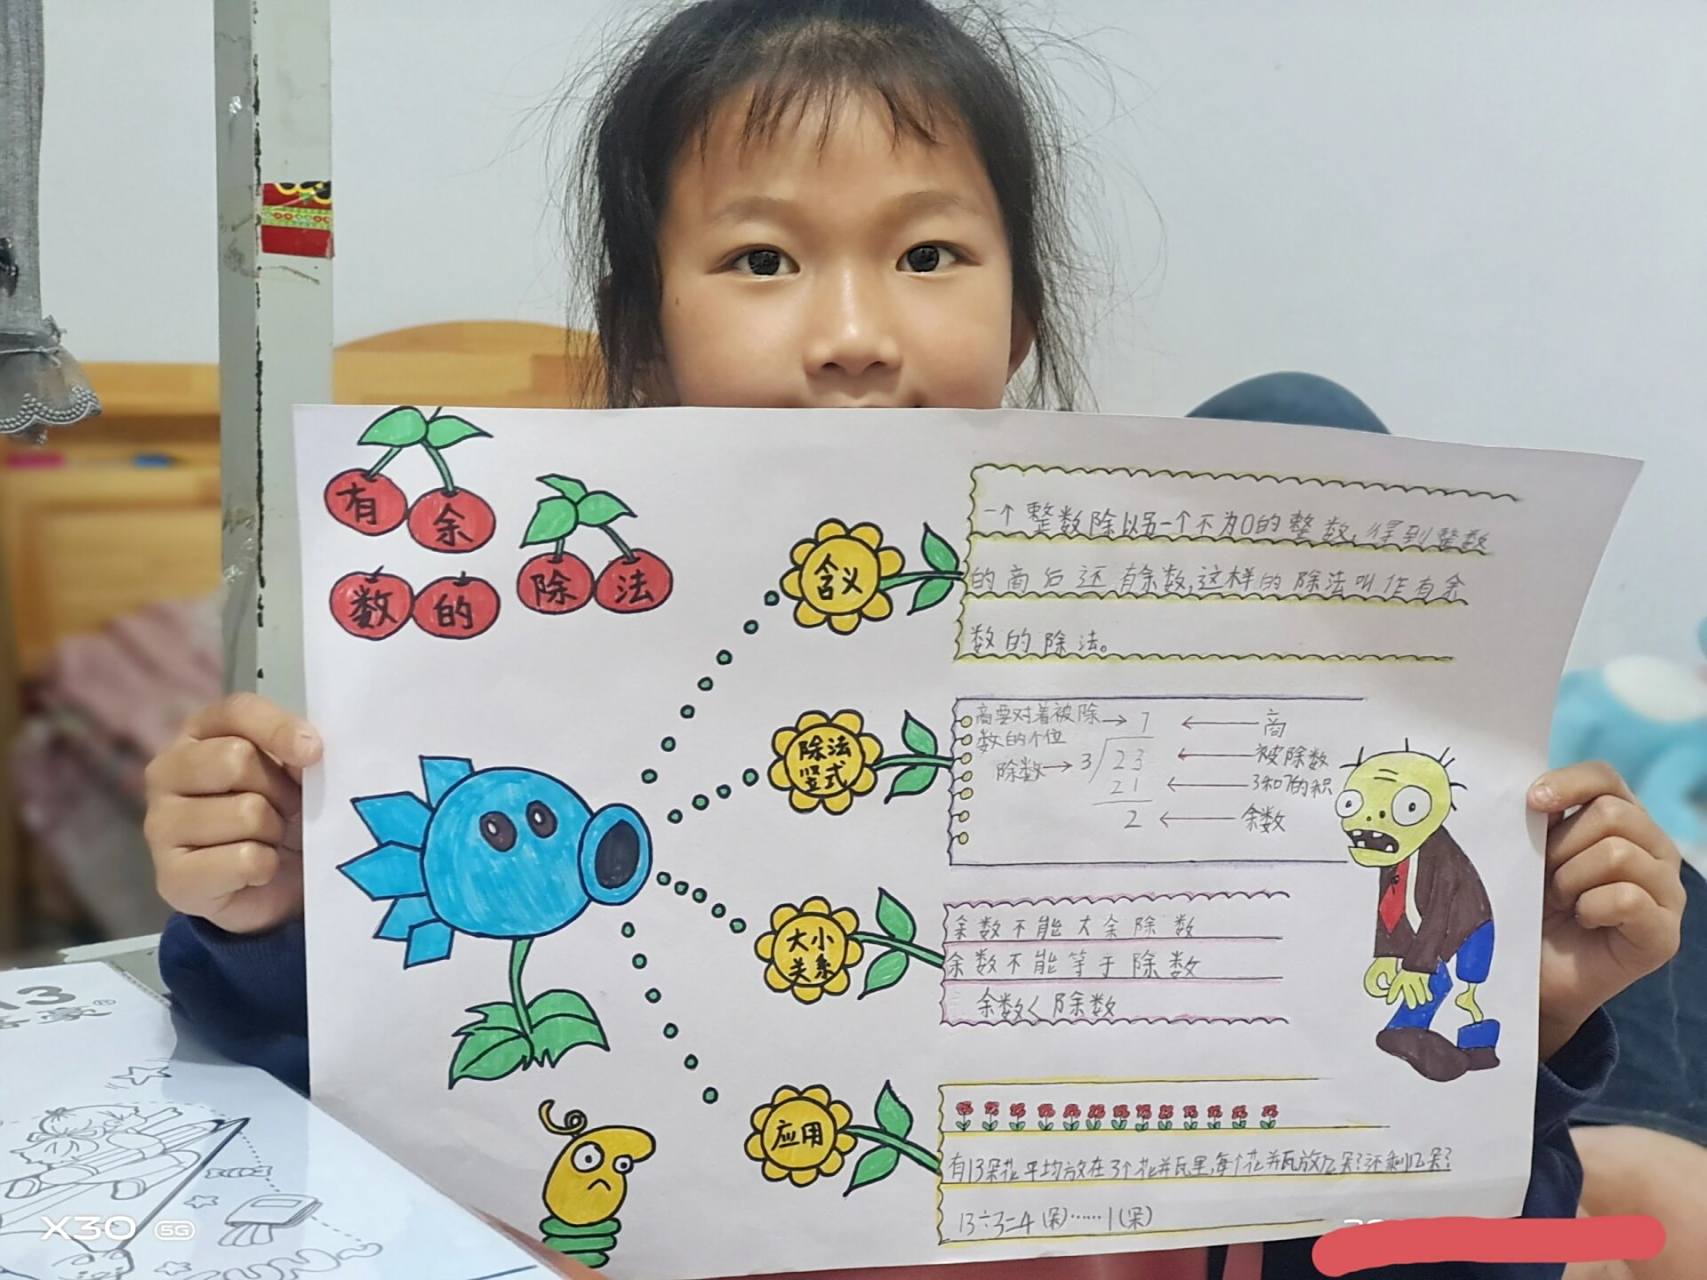 有余
数的
除法
含义
一个整数除以另一个不为0的整数,得到整数
的商后还有余数,这样的除法叫作有余
数的除法。
除法
竖式
商要对着被除
数的个位
7
商
除数
3
23
被除数
21
3和7的积
2
余数
大小
关系
余数不能大余除数
余数不能等于除数
余数<除数
应用
有13朵花平均放在3个花瓶里,每个花瓶放几朵?还剩几朵?
13÷3=4(朵)……1(朵)
X30 5G